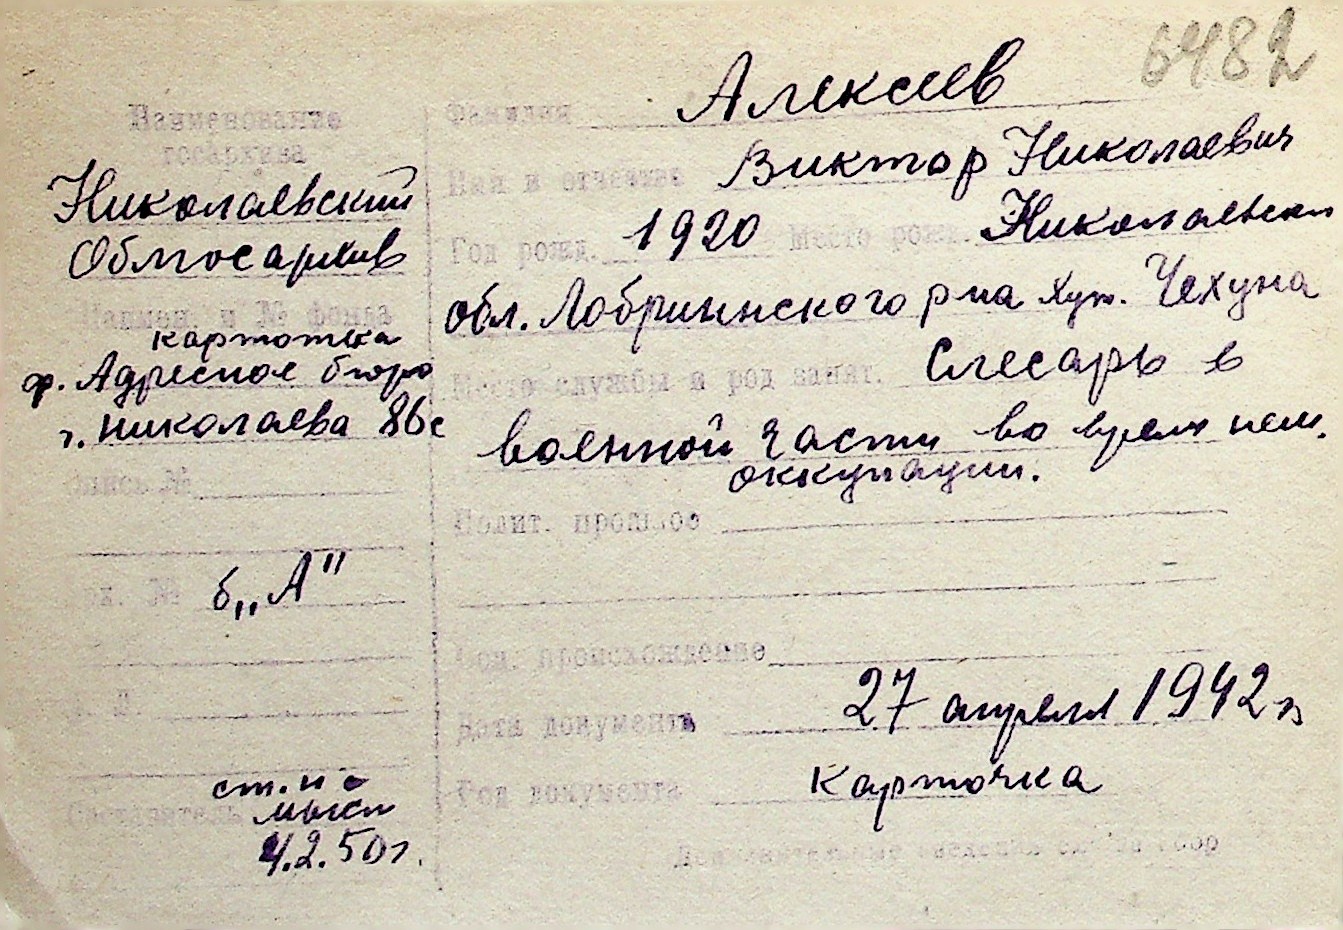 6482
Наименование
госархива
Николаевский
Облгосархив
Наимен. и № фонда
картотека
ф. Адресное бюро
г. Николаева 86с
Опись №
№ б„А"
Составитель
4.2.50г.
Фамилия Алексеев
Имя и отчество Виктор Николаевич
Год рожд. 1920 Место рожд. Николаевск
обл. Добринского р-на Хут. Чехуна
Место службы и род занят. Слесарь в
военной части во время нем.
оккупации.
Полит. прошлое
Соц. происхождение
Дата документа 27 апреля 1942 г
Род документа карточка